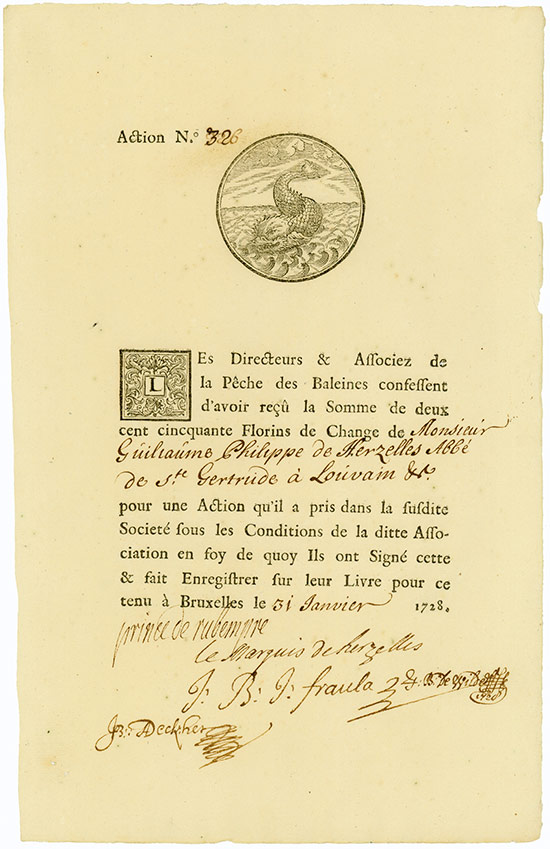 Action N.º 326
LEs Directeurs & Associez de
la Pêche des Baleines confessent
d'avoir reçû la Somme de deux
cent cincquante Florins de Change de Monsieur
Guilliaume Philippe de Herzelles Abbé
de Ste Gertrude à Louvain &c.
pour une Action qu'il a pris dans la susdite
Societé sous les Conditions de la ditte Asso-
ciation en foy de quoy Ils ont Signé cette
& fait Enregistrer sur leur Livre pour ce
tenu à Bruxelles le 31 Janvier 1728.
prince de rubempre
le Marquis de herzelles
J: B: J: fraula
JB: Deckher